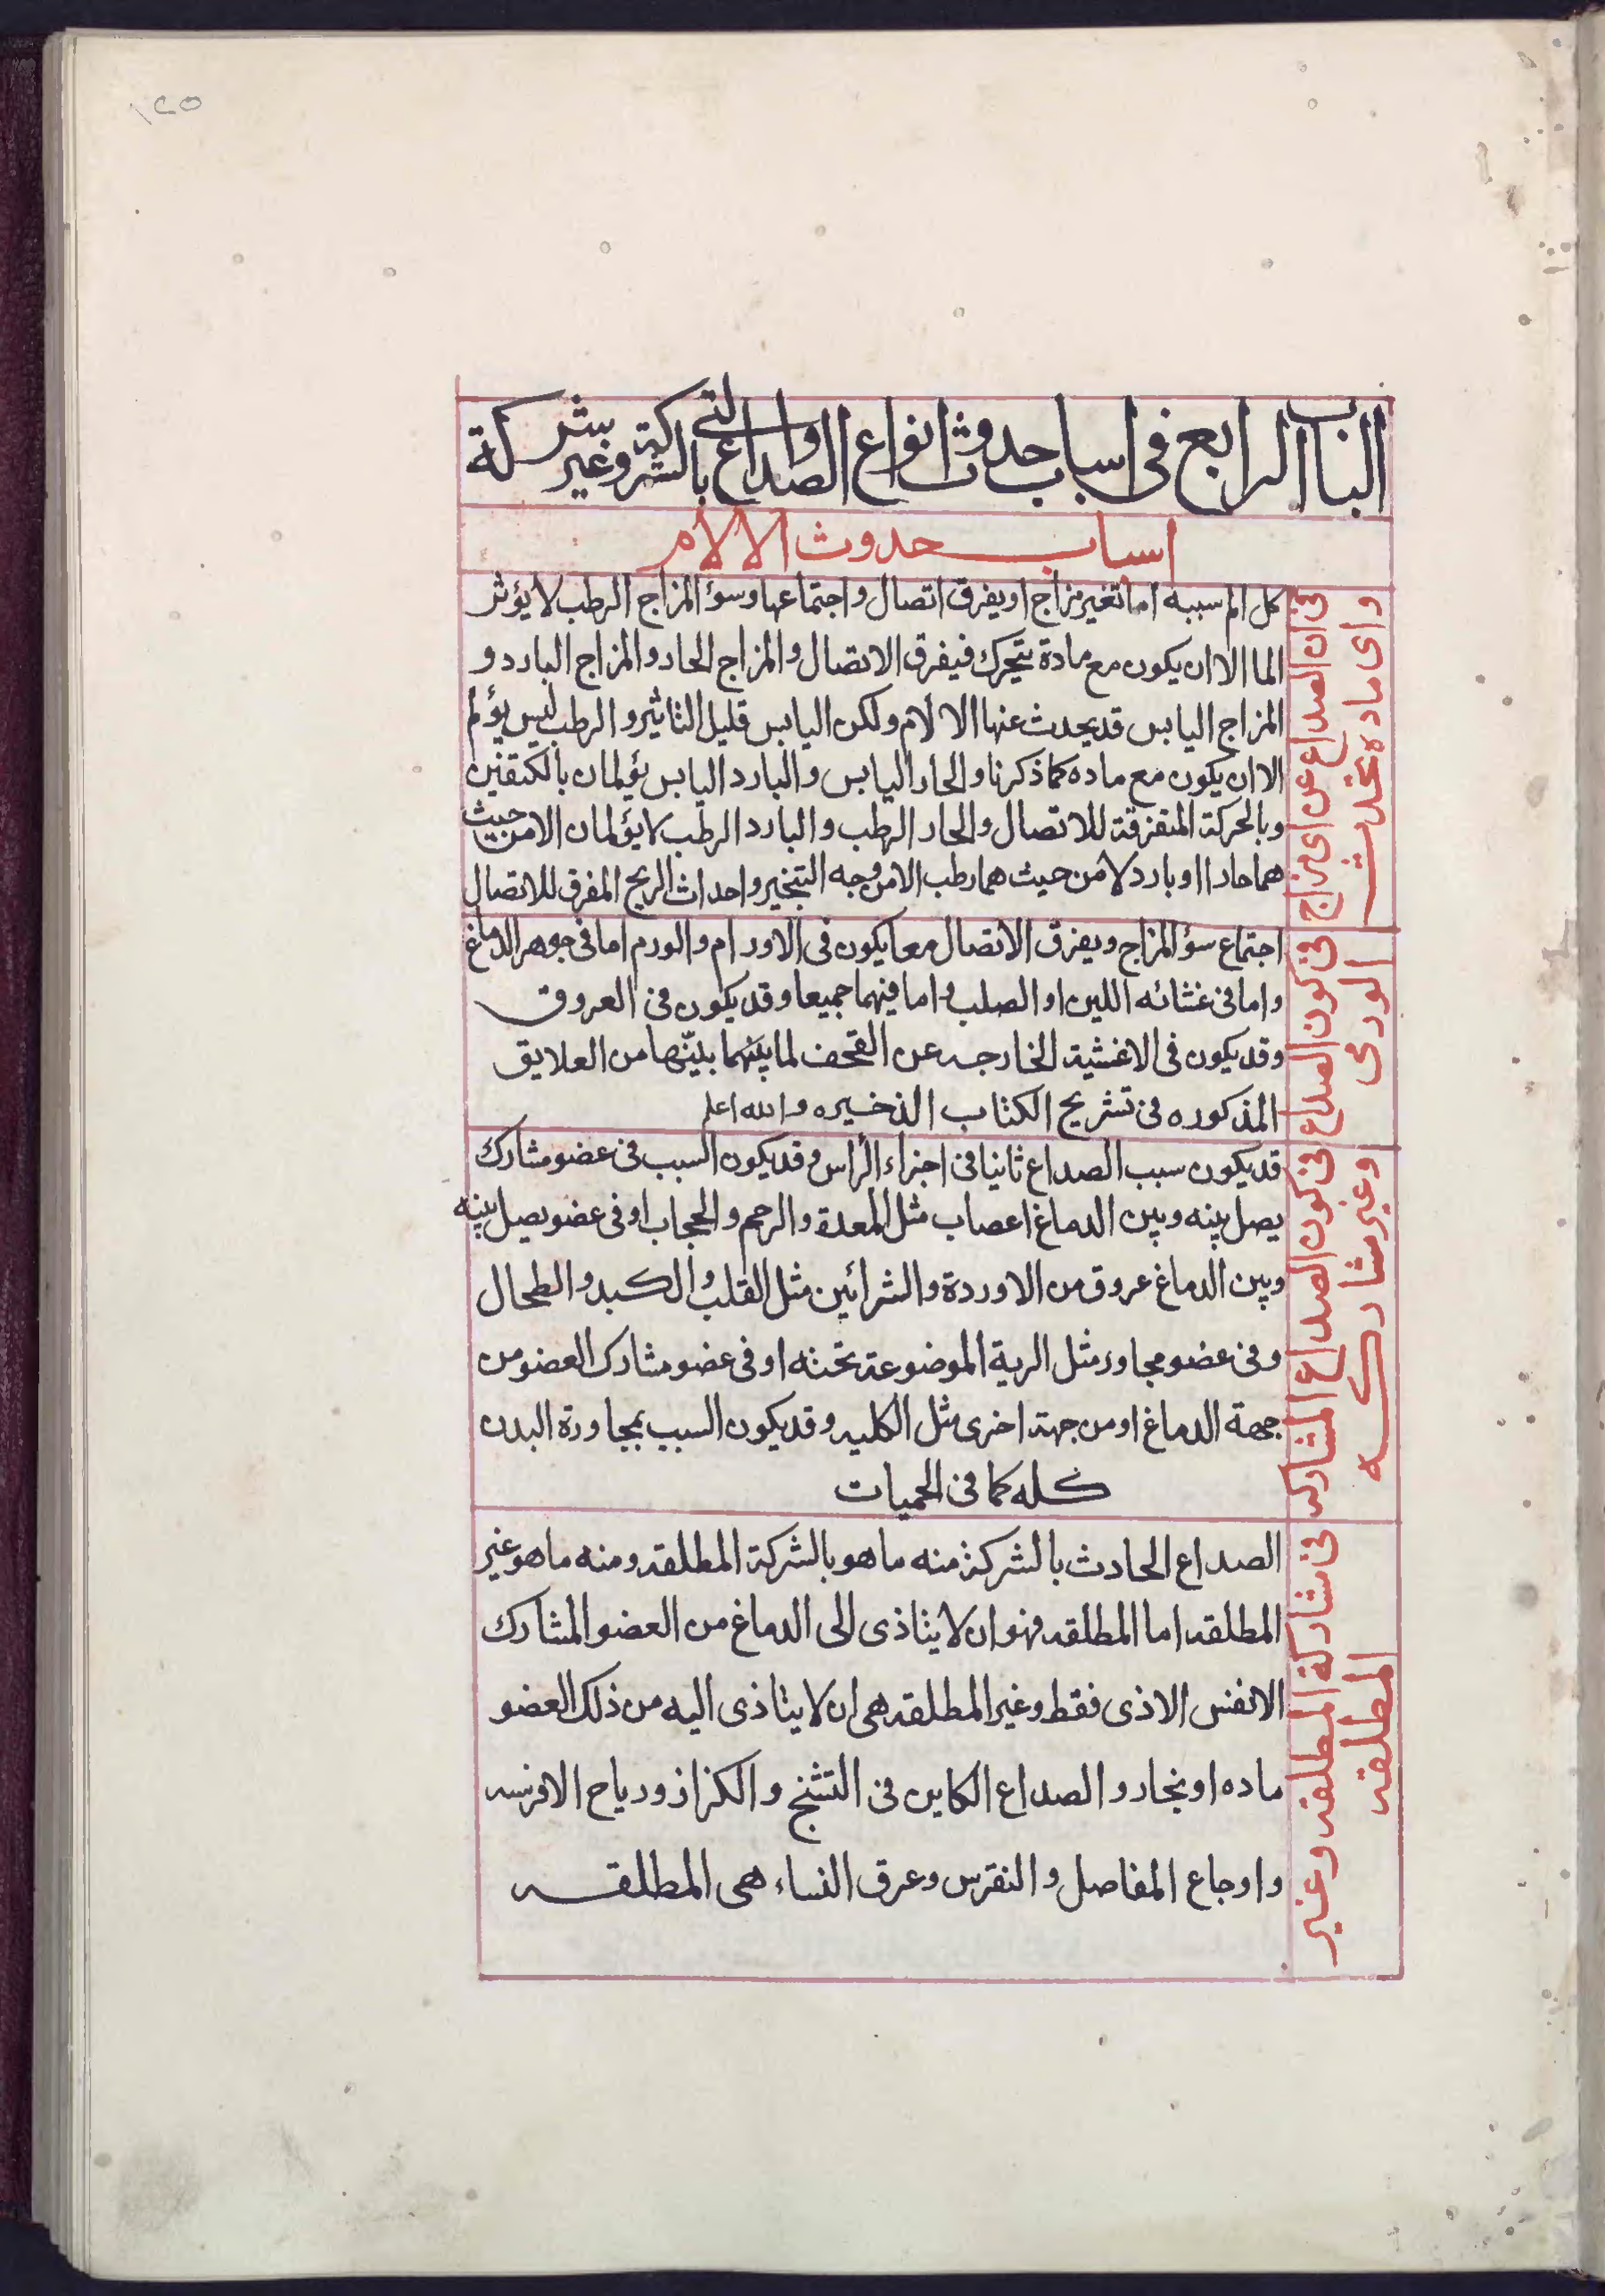 ١٢٥
الباب الرابع فى اسباب حدوث انواع الصداع والتى بالشركة وغير بشركة
اسباب حدوث الالام
فى ان الصداع عن اى مزاج
واى ماده تحدث
كل الم سببه اما تغير مزاج او يفرق اتصال واجتماعها وسؤ المزاج الرطب لا يؤثر
الما الا ان يكون مع مادة يتحرك فيفرق الاتصال والمزاج الحار والمزاج البارد و
المزاج اليابس قد يحدث عنها الالام ولكن اليابس قليل التاثير والرطب ليس يؤلم
الا ان يكون مع ماده كما ذكرنا والحار اليابس والبارد اليابس يؤلمان بالكيفتين
وبالحركة المتفرقة للاتصال والحار الرطب والبارد الرطب لا يؤلمان الا من حيث
هما حار ا او بارد لا من حيث هما رطب الا من وجه التبخير واحداث الريح المفرق للاتصال
فى كون الصداع
الورمى
اجتماع سؤ المزاج ويفرق الاتصال معا يكون فى الاورام والورم اما فى جوهر الدماغ
واما فى غشائه اللين او الصلب واما فيهما جميعا وقد يكون فى العروق
وقد يكون فى الاغشية الخارجه عن القحف لما بينهما بينها من العلايق
المذكوره فى تشريح الكتاب الذخيره والله اعلم
فى كون الصداع المشاركه
وغير مشاركه
قد يكون سبب الصداع ثانيا فى اجزاء الراس وقد يكون السبب فى عضو مشارك
يصل بينه وبين الدماغ اعصاب مثل المعدة والرحم والحجاب او فى عضو يصل بينه
وبين الدماغ عروق من الاوردة والشرائين مثل القلب والكبد والطحال
وفى عضو مجاور مثل الرية الموضوعة تحته او فى عضو مشارك العضو من
جهة الدماغ او من جهة اخرى مثل الكليه وقد يكون السبب بمجاورة البدن
كله كما فى الحميات
فى مشاركة المطلقه وغير
المطلقه
الصداع الحادث بالشركة منه ما هو بالشركة المطلقه ومنه ما هو غير
المطلقه اما المطلقه فهو ان لا يتاذى الى الدماغ من العضو المشارك
الا نفس الاذى فقط وغير المطلقه هى ان لا يتاذى اليه من ذلك العضو
ماده او بخار والصداع الكاين فى التشنج والكزاز ورياح الافرسه
واوجاع المفاصل والنقرس وعرق النساء هى المطلقه